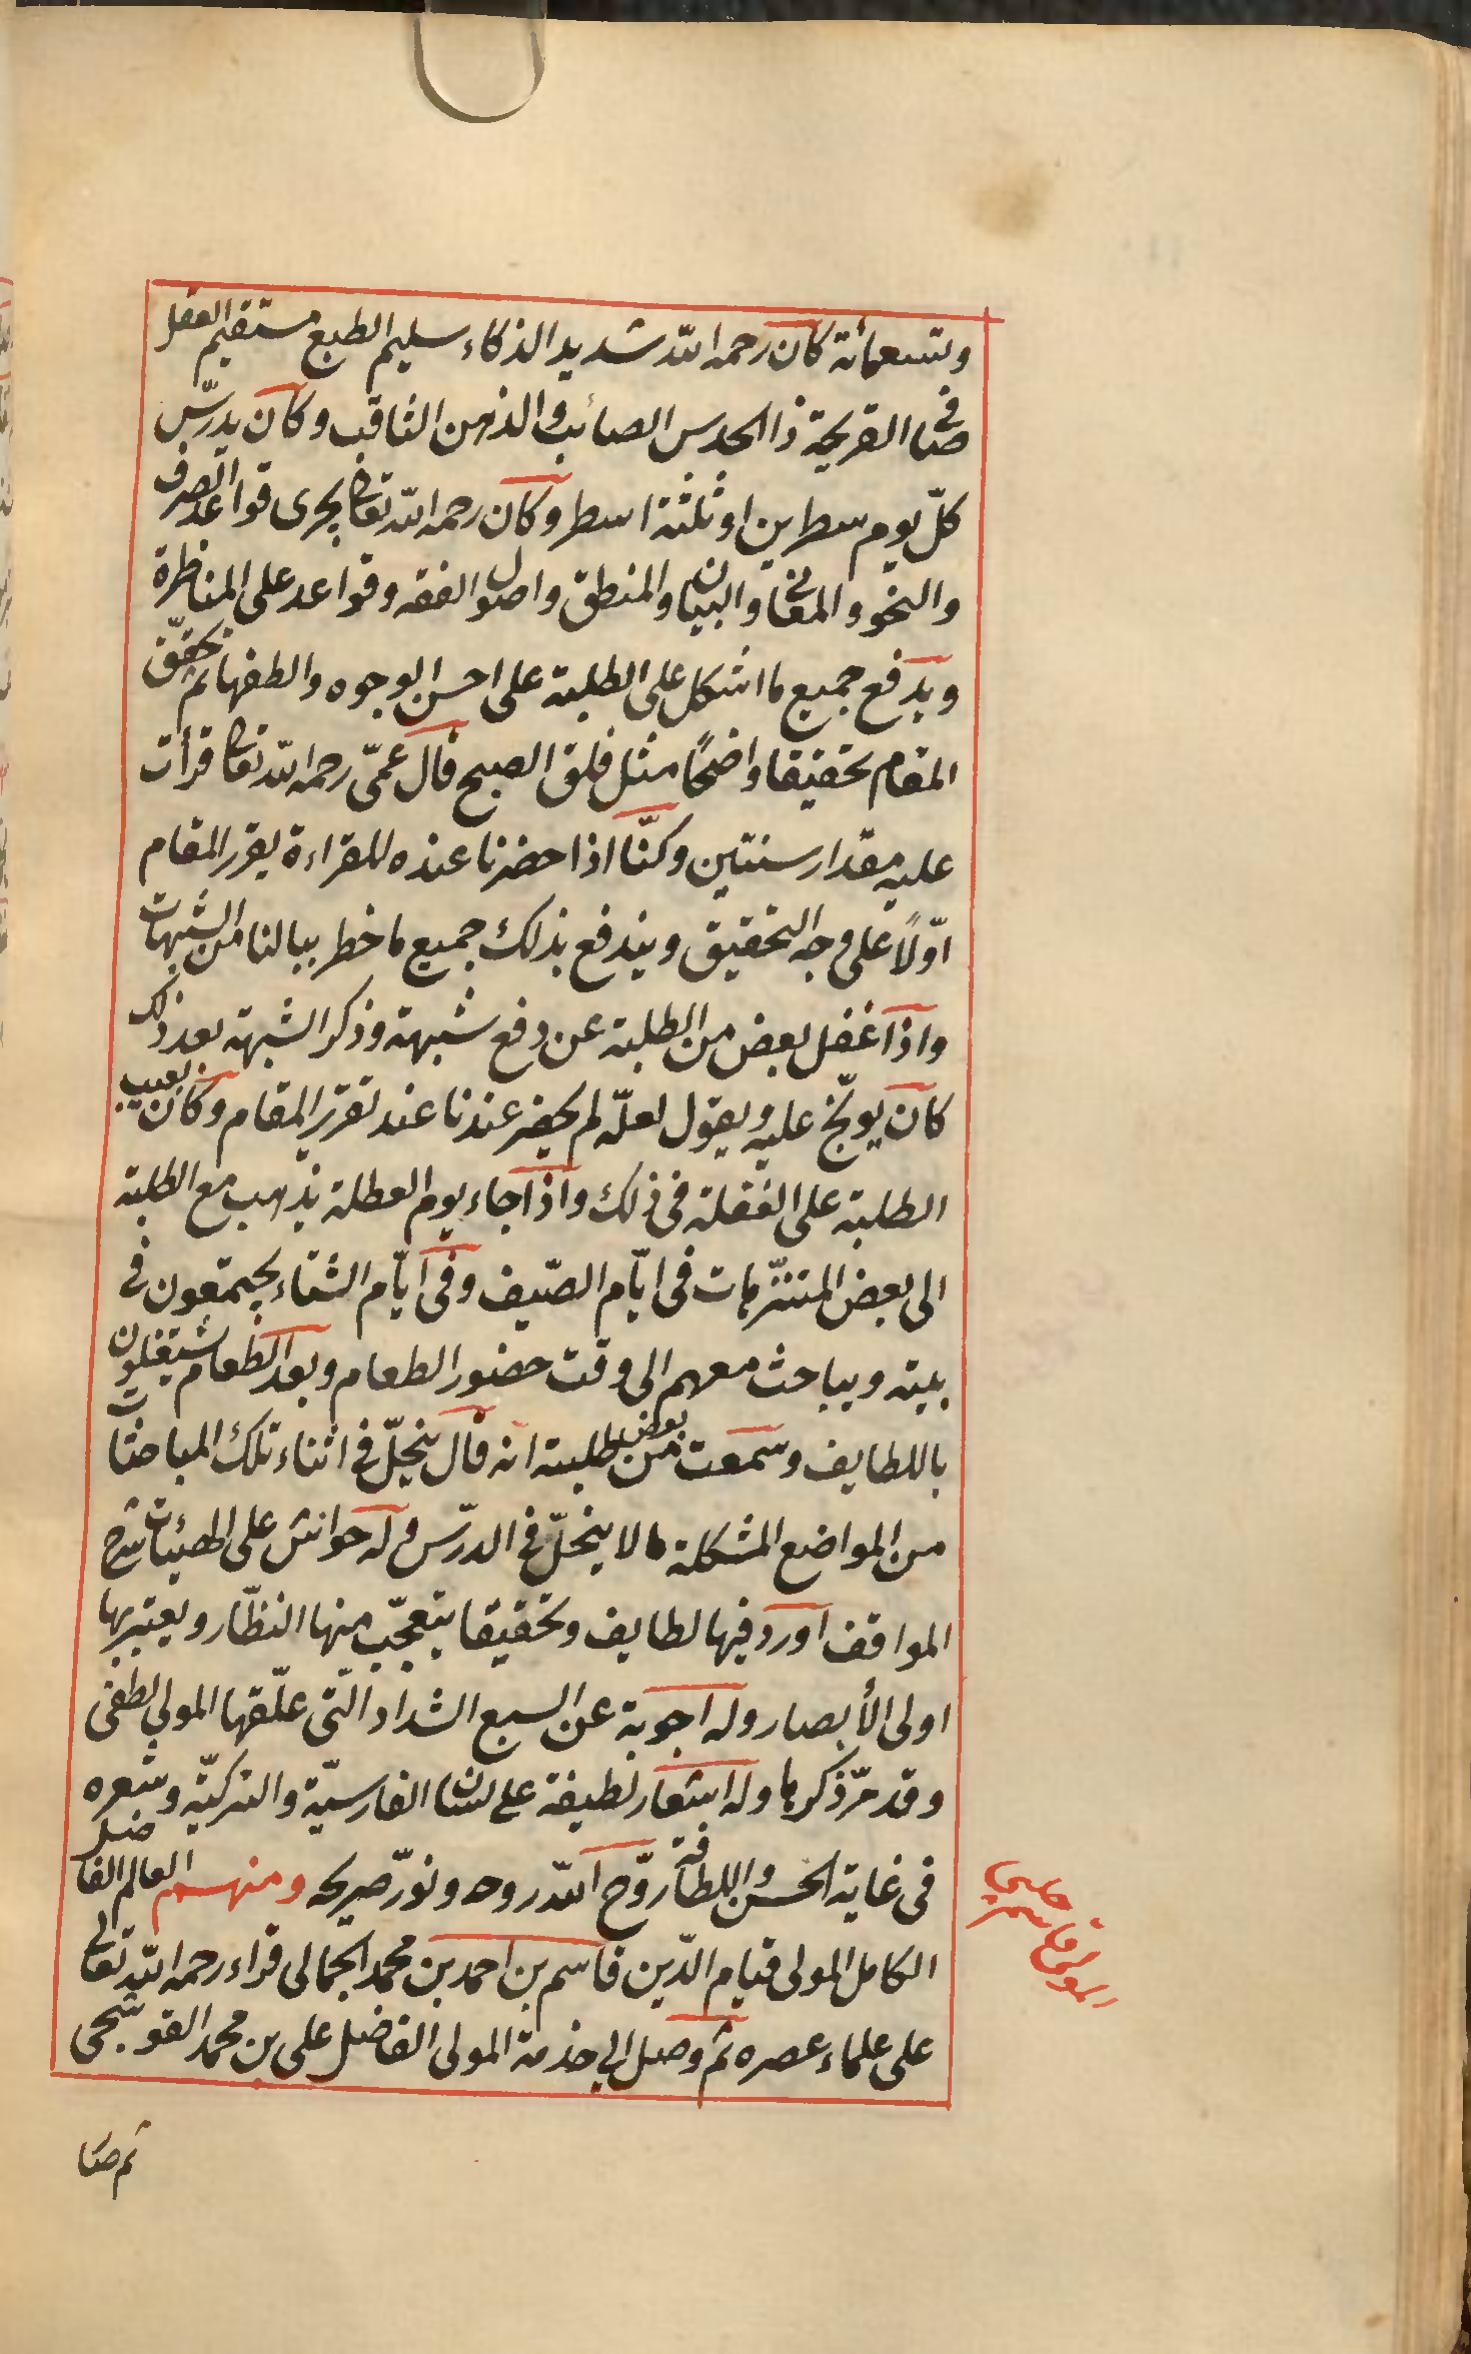 وتسعمائة كان رحمه الله شديد الذكاء سليم الطبع مستقيم العقل
صافى القريحة ذا الحدس الصائب والذهن الثاقب وكان يدرّس
كلّ يوم سطرين او ثلثة اسطر وكان رحمه الله تعالى يجرى قواعد الصرف
والنحو والمعانى والبيان والمنطق واصول الفقه وقواعد على المناظرة
ويدفع جميع ما اشكل على الطلبة على احسن الوجوه والطفها ثم يحقّق
المقام تحقيقا واضحًا مثل فلق الصبح قال عمّى رحمه الله تعالى قرأت
عليه مقدار سنتين وكنّا اذا حضرنا عنده للقراءة يقرر المقام
اوّلًا على وجه التحقيق ويندفع بذلك جميع ما خطر ببالنا من الشبهات
واذا غفل بعض من الطلبة عن دفع شبهة وذكر الشبهة بعد ذلك
كان يوبّخ عليه ويقول لعلّه لم يحضر عندنا عند تقرير المقام وكان يعيب
الطلبة على الغفلة فى ذلك واذا جاء يوم العطلة يذهب مع الطلبة
الى بعض المتنزّهات فى ايّام الصّيف وفى ايّام الشتاء يجتمعون فى
بيته ويباحث معهم الى وقت حضور الطعام وبعد الطعام يشتغلون
باللطايف وسمعت من بعض طلبته انه قال ينحلّ فى اثناء تلك المباحثات
من المواضع المشكلة ما لا ينحلّ فى الدرّس وله حواش على الهيئات شرح
المواقف اورد فيها لطايف وتحقيقا يتعجّب منها النظّار ويعتبر بها
اولى الأبصار وله اجوبة عن السبع الشداد الّتى علّقها المولى لطفى
وقد مرّ ذكرها وله اشعار لطيفة على لسان الفارسيّة والتركيّة وشعره
فى غاية الحسن واللطافة روّح الله روحه ونوّر ضريحه ومنهم العالم الفاضل
الكامل المولى قيام الدّين قاسم بن احمد بن محمد الجمالى قراء رحمه الله تعالى
على علماء عصره ثم وصل الى خدمة المولى الفاضل على بن محمد القوشجى
المولى قاسم چلبى
ثم صا